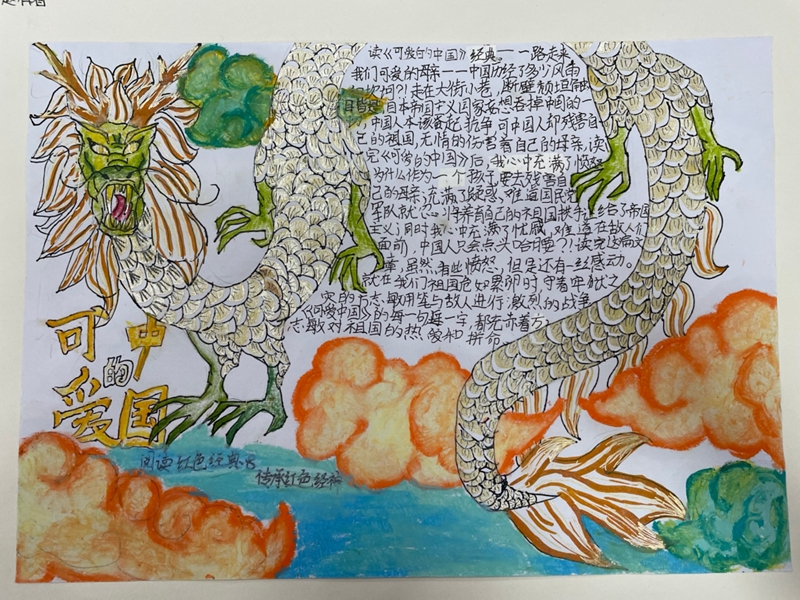 读《可爱的中国》经典——一路走来
我们可爱的母亲——中国历经了多少风雨
坎坷?!走在大街小巷,断壁
日本帝国主义国家各想吞掉中国的一
中国人本该奋起抗争,可中国人却残害自
己的祖国,无情的伤害着自己的母亲,读
完《可爱的中国》后,我心中充满了愤怒
为什么作为一个孩子要去残害自
己的母亲,充满了疑惑,难道国民党
军队就忍心将养育自己的祖国拱手送给了帝国
主义;同时我心中充满了忧戚,难道在敌人们
面前,中国人只会点头哈腰?!读完这篇文
章,虽然有些愤怒,但是还有一丝感动。
就在我们祖国危如累卵时,守着牢狱之
灾的方志敏用笔与敌人进行激烈的战争
《可爱中国》的每一句每一字,都充斥着方
志敏对祖国的热爱和拼命
可爱的中国
阅读红色经典书
传承红色